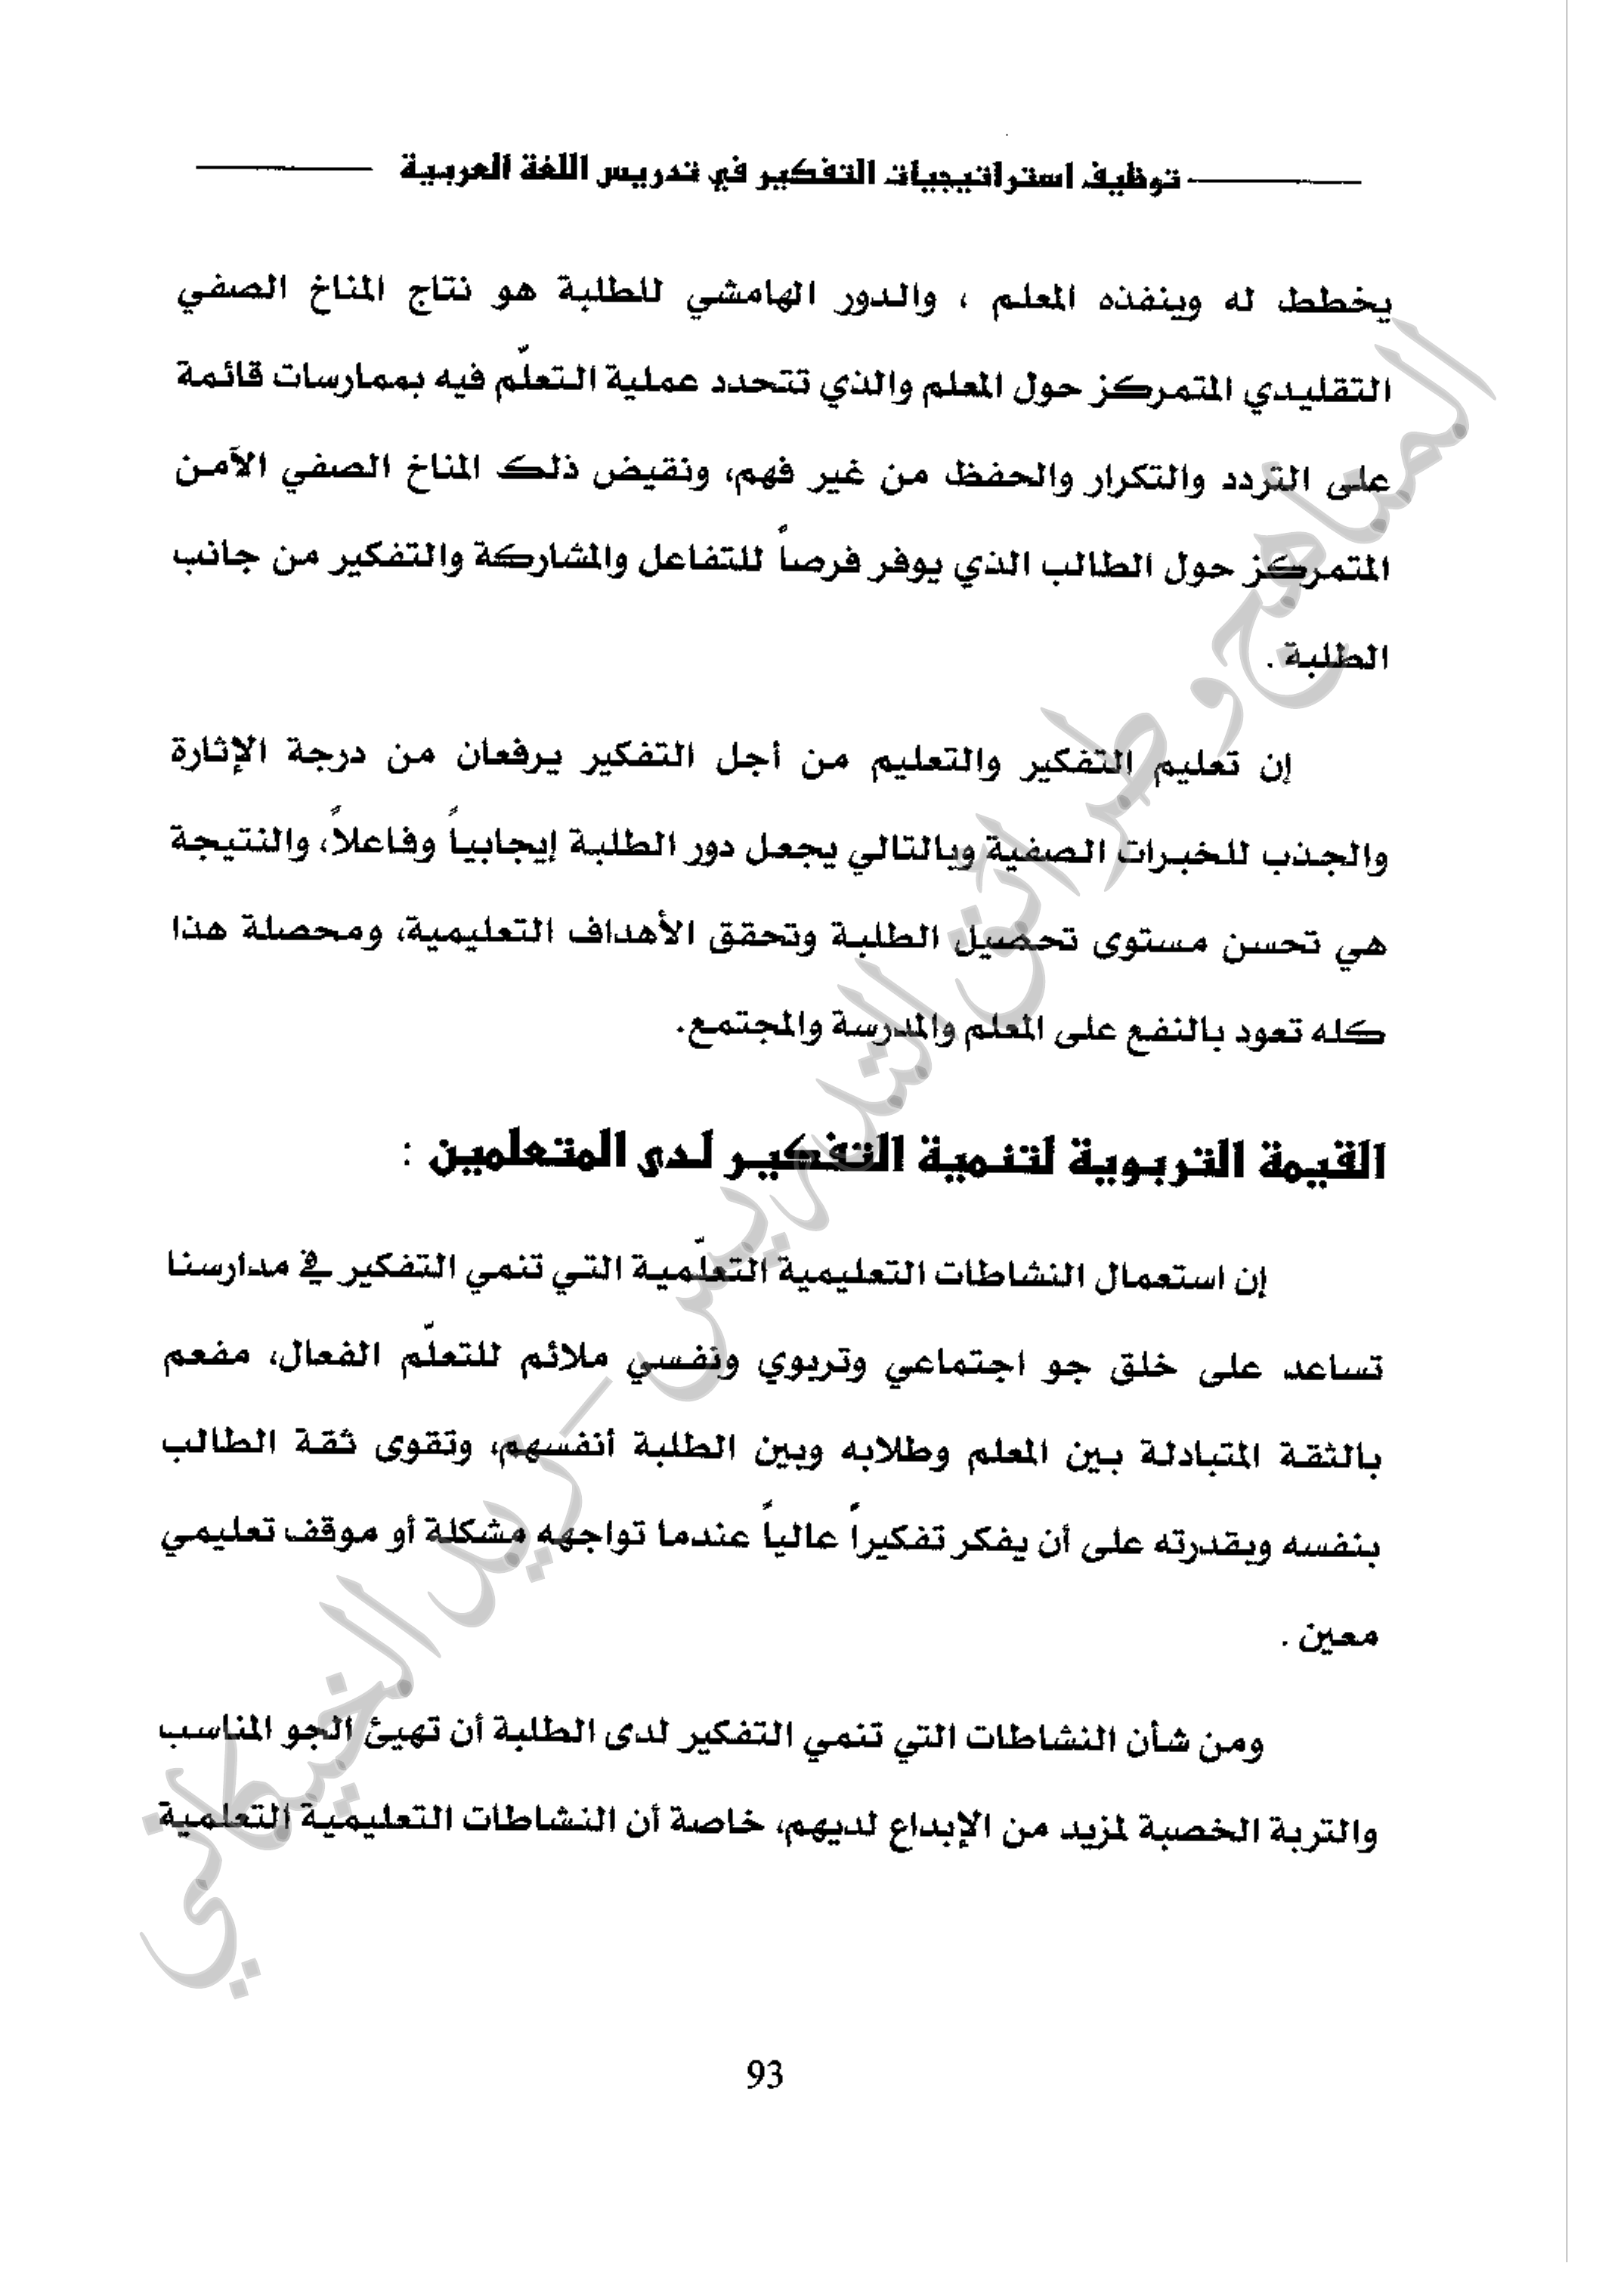 توظيف استراتيجيات التفكير في تدريس اللغة العربية
يخطط له وينفذه المعلم ، والدور الهامشي للطلبة هو نتاج المناخ الصفي
التقليدي المتمركز حول المعلم والذي تتحدد عملية التعلّم فيه بممارسات قائمة
على التردد والتكرار والحفظ من غير فهم، ونقيض ذلك المناخ الصفي الآمن
المتمركز حول الطالب الذي يوفر فرصاً للتفاعل والمشاركة والتفكير من جانب
الطلبة .
إن تعليم التفكير والتعليم من أجل التفكير يرفعان من درجة الإثارة
والجذب للخبرات الصفية وبالتالي يجعل دور الطلبة إيجابياً وفاعلاً، والنتيجة
هي تحسن مستوى تحصيل الطلبة وتحقق الأهداف التعليمية، ومحصلة هذا
كله تعود بالنفع على المعلم والمدرسة والمجتمع.
القيمة التربوية لتنمية التفكير لدى المتعلمين :
إن استعمال النشاطات التعليمية التعلّمية التي تنمي التفكير في مدارسنا
تساعد على خلق جو اجتماعي وتربوي ونفسي ملائم للتعلّم الفعال، مفعم
بالثقة المتبادلة بين المعلم وطلابه وبين الطلبة أنفسهم، وتقوى ثقة الطالب
بنفسه وبقدرته على أن يفكر تفكيراً عالياً عندما تواجهه مشكلة أو موقف تعليمي
معين .
ومن شأن النشاطات التي تنمي التفكير لدى الطلبة أن تهيئ الجو المناسب
والتربة الخصبة لمزيد من الإبداع لديهم، خاصة أن النشاطات التعليمية التعلمية
93
المناهج وطرائق التدريس – ريد الخيكاني